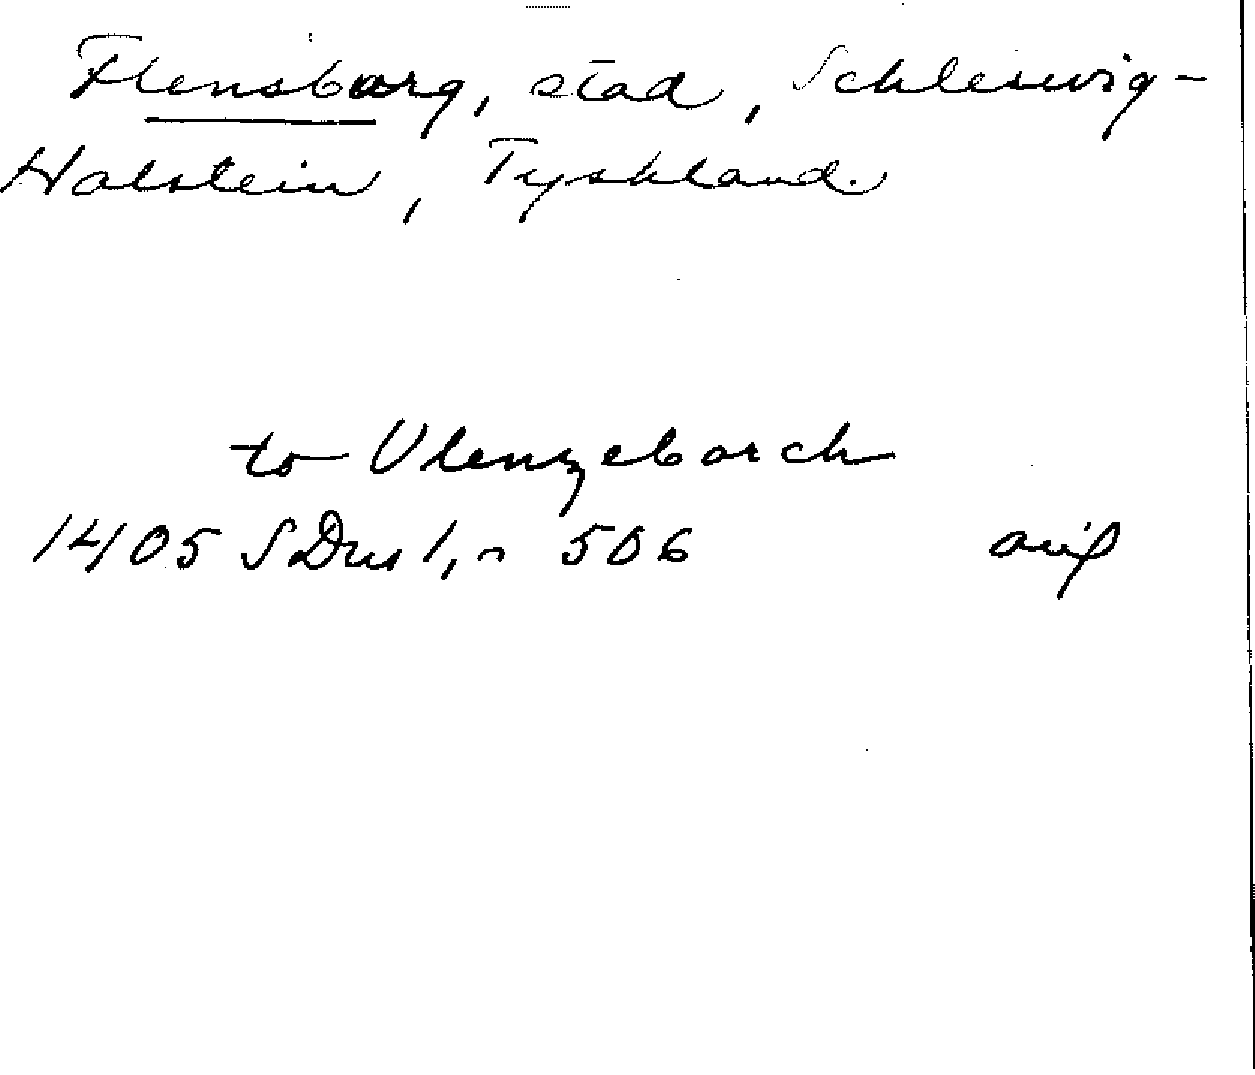 Flensburg, stad, Schleswig-
Holstein, Tyskland.
to Vlenzeborch
1405 SDns 1, n 506 avip